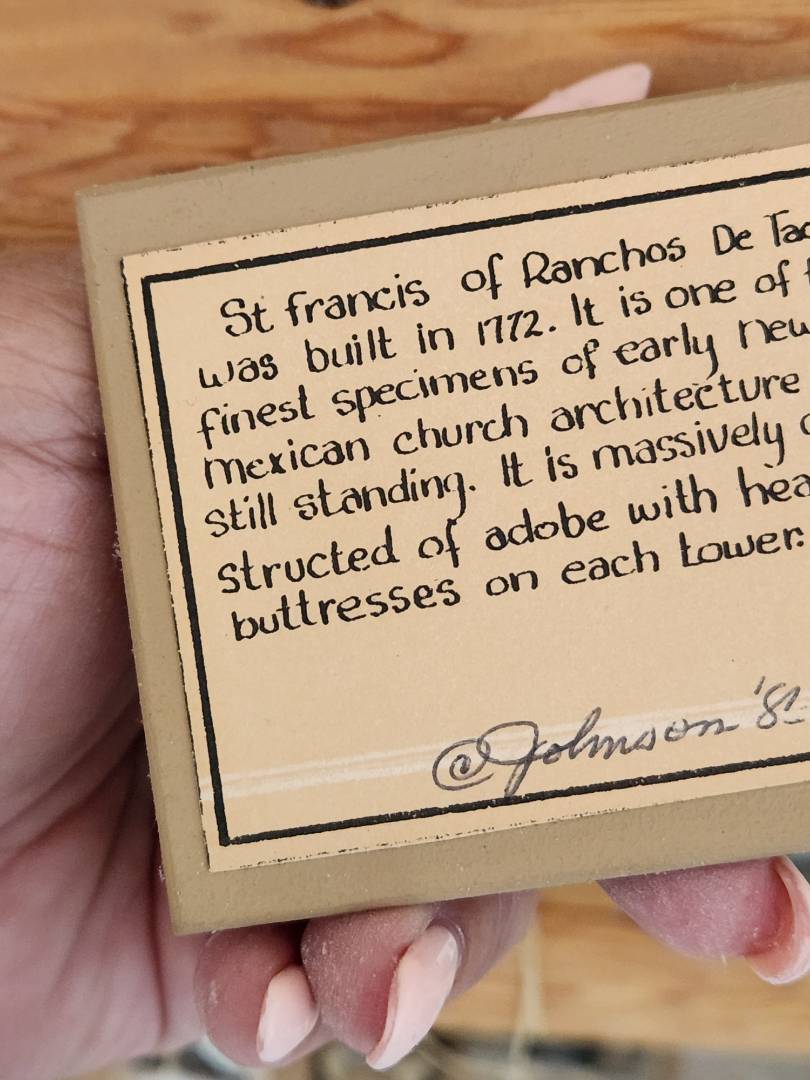 St francis of Ranchos De Tao
was built in 1772. It is one of t
finest specimens of early new
mexican church architecture
still standing. It is massively c
structed of adobe with hea
buttresses on each tower.
@Johnson '81